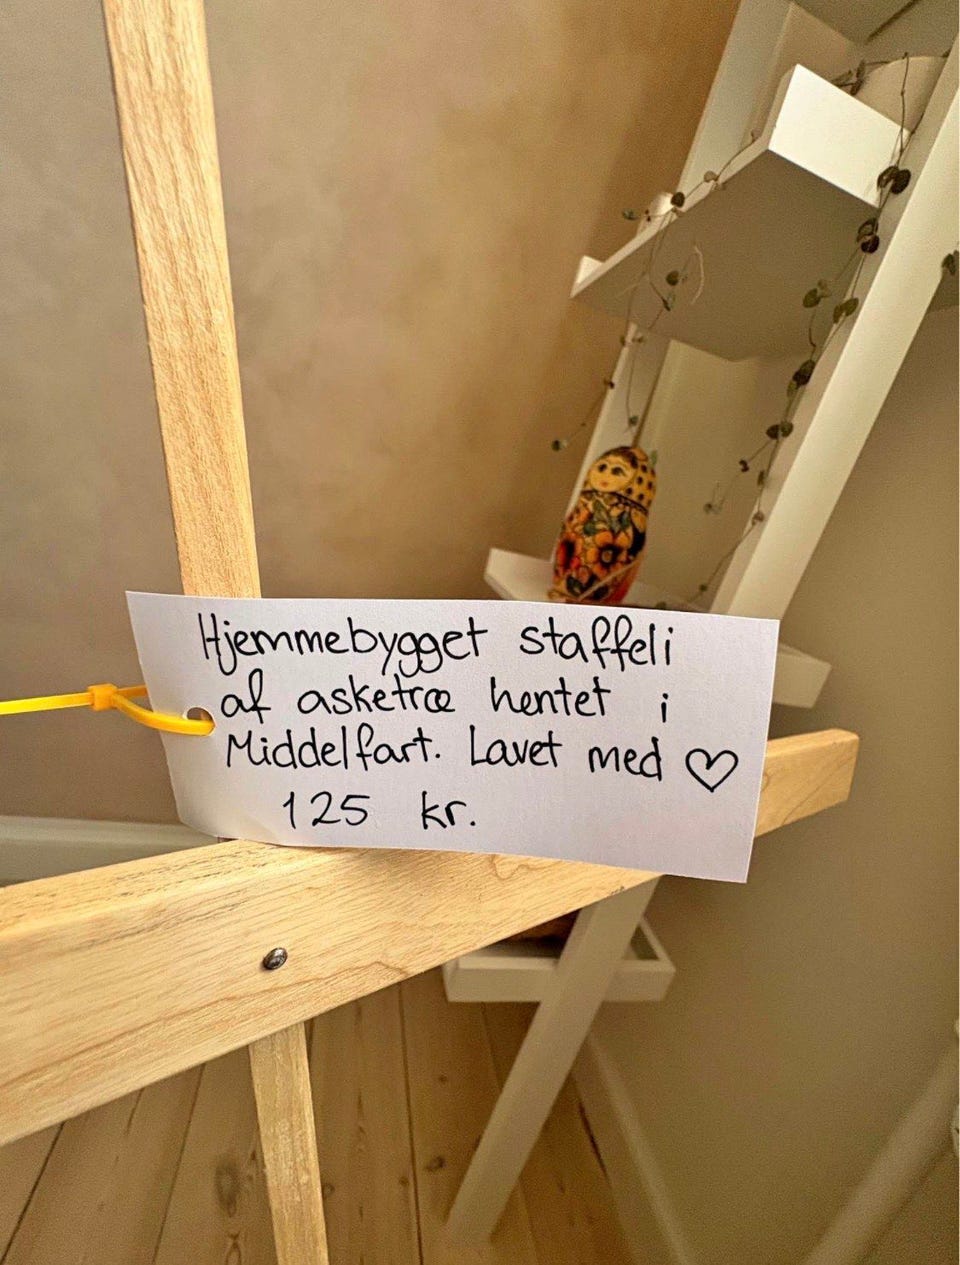 Hjemmebygget staffeli
af asketræ hentet i
Middelfart. Lavet med ♡
125 kr.